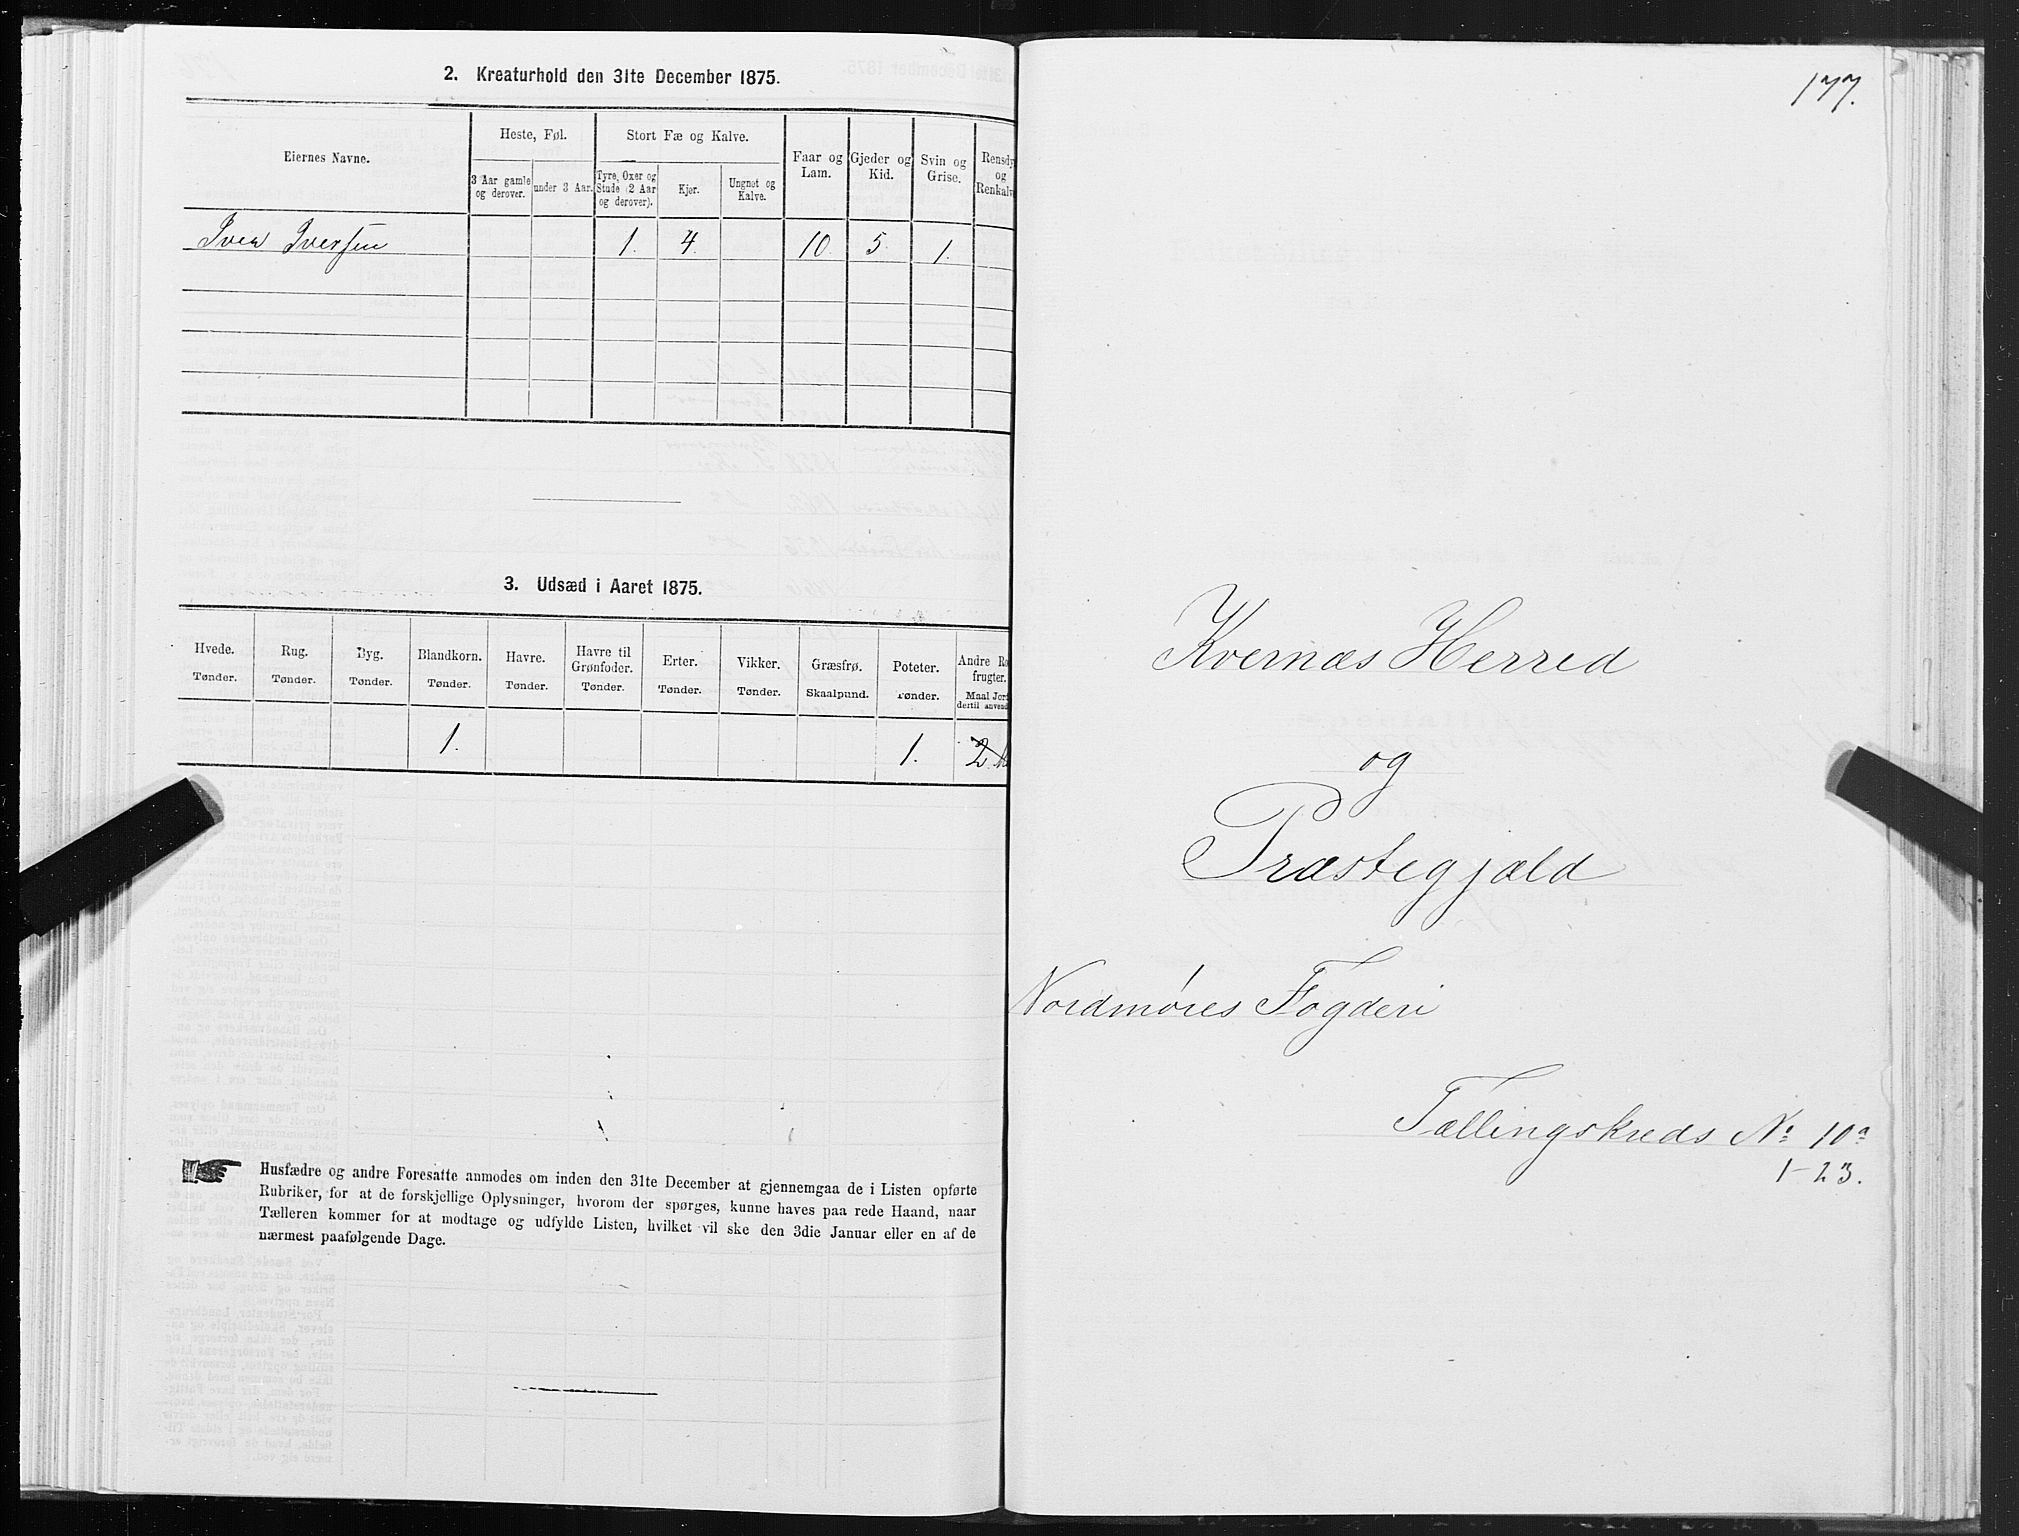 2. Kreaturhold den 31te December 1875.
Eiernes Navne.
Heste, Føl.
3 Aar gamle og derover.
under 3 Aar.
Stort Fæ og Kalve.
Tyre, Oxer og Stude (2 Aar og derover).
Kjør.
Ungnøt og Kalve.
Faar og Lam.
Gjeder og Kid.
Svin og Grise.
Rensdy
og
Renkalv
Iver Iversen 1. 4. 10 5. 1.
3. Udsæd i Aaret 1875.
Hvede. Tønder.
Rug. Tønder.
Byg. Tønder.
Blandkorn. Tønder.
Havre. Tønder.
Havre til Grønfoder. Tønder.
Erter. Tønder.
Vikker. Tønder.
Græsfrø. Skaalpund.
Poteter. Tønder.
Andre Ro
frugter.
Maal Jord
dertil anvend
1. 1. 2
Husfædre og andre Foresatte anmodes om inden den 31te December at gjennemgaa de i Listen opførte
Rubriker, for at de forskjellige Oplysninger, hvorom der spørges, kunne haves paa rede Haand, naar
Tælleren kommer for at modtage og udfylde Listen, hvilket vil ske den 3die Januar eller en af de
nærmest paafølgende Dage.
177.
Kvernæs Herred
og
Præstegjæld
Nordmøres Fogderi
Tællingskreds No 10a
1-23.